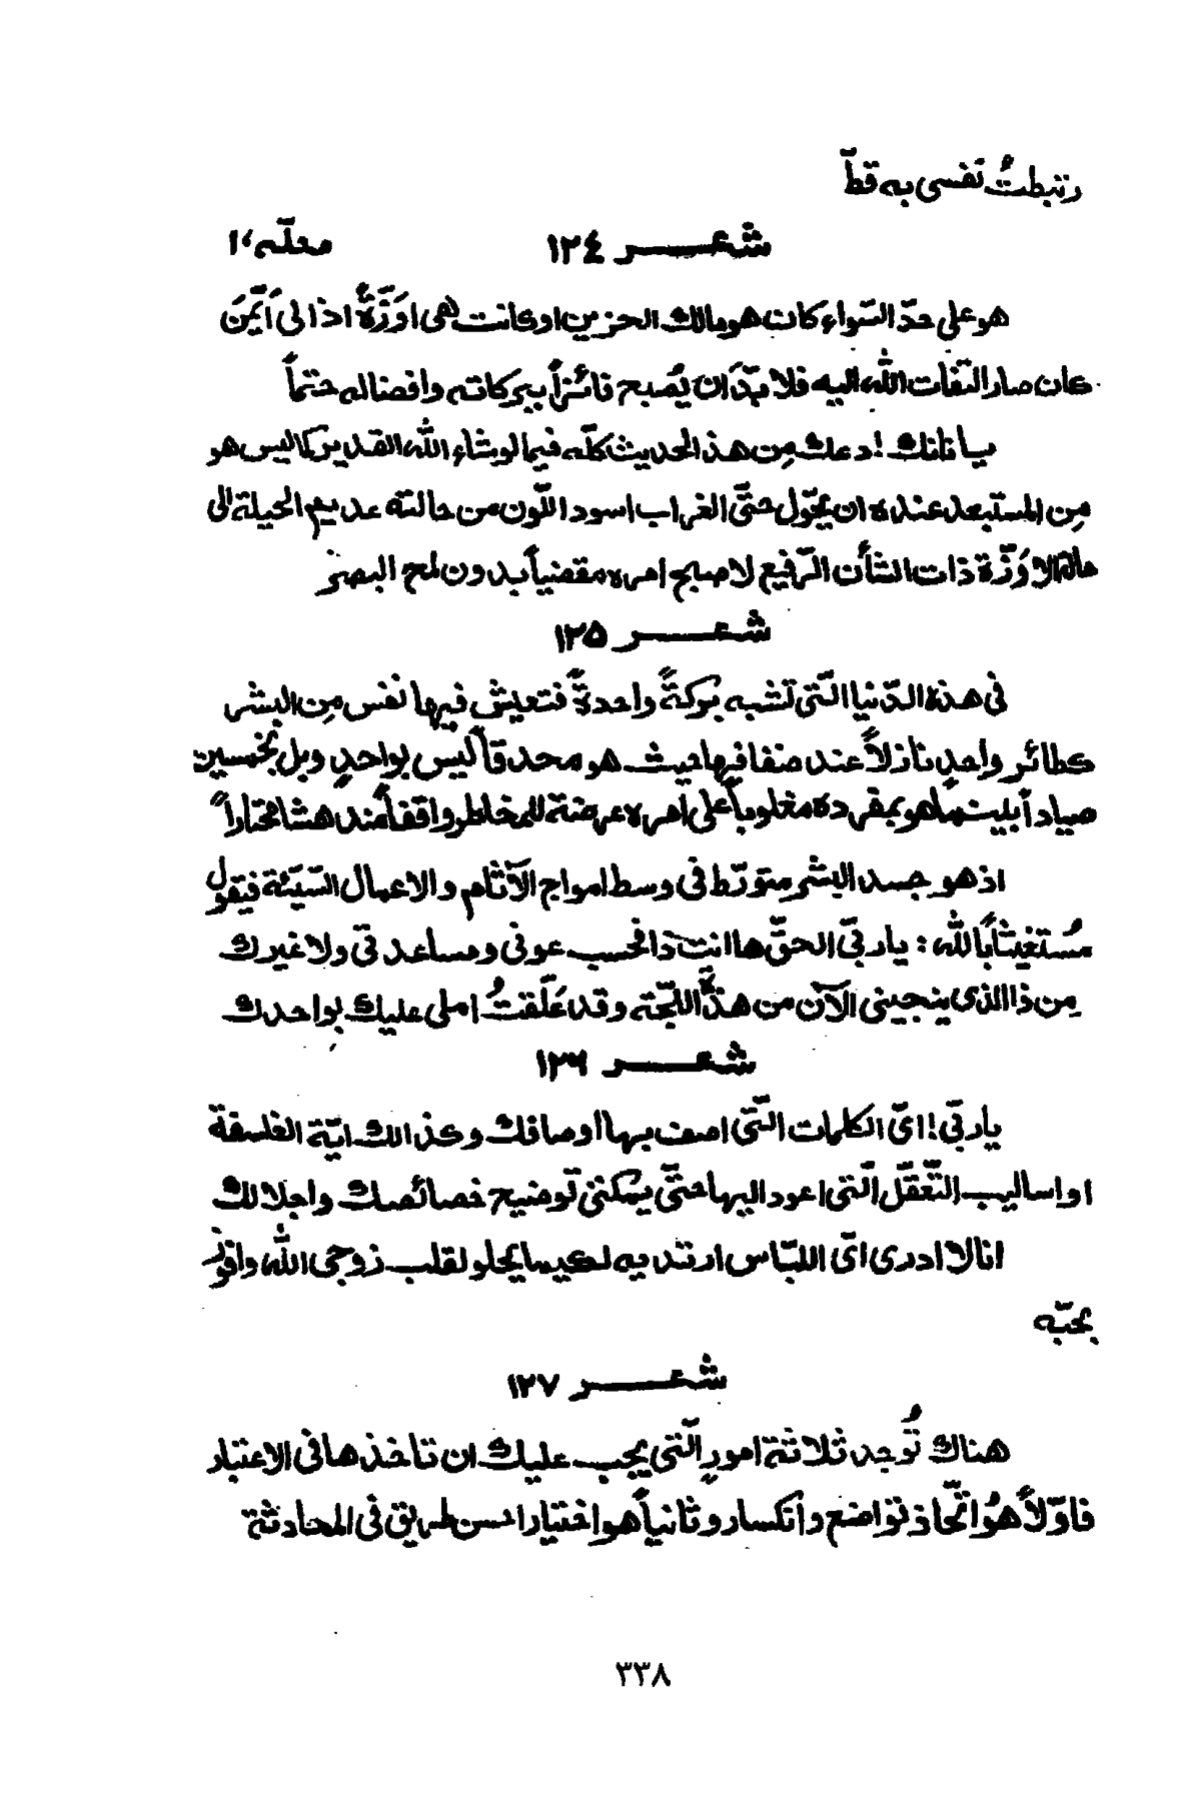 رتبطتُ نفسى به قطّ
شعر ١٢٤ محلّه ١،
هو على حدّ السّواء كان هو مالك الحزين او كانت هى اوَزَّةٌ اذا لى اَيّمَنَ
كان صار التفات الله اليه فلا بدّ اَن يُصبح فائزاً ببركاته وافضاله حتماً
يا نانك! دعك مِن هذ الحديث كلّه فيما لو شاء الله القدير كما ليس هو
مِن المستبعد عنده ان يحوّل حتىّ الغراب اسود اللّون من حالته عديم الحيلة الى
حالة الاوَزَّة ذات الشأن الرّفيع لا صبح امره مقضياً بدون لمح البصر
شعر ١٢٥
فى هذه الدّنيا الّتى تشبه بركةً واحدةً فتعيش فيها نفس مِن البشر
كطائرٍ واحدٍ نازلاً عند ضفافها حيث هو محدقاً ليس بواحدٍ وبل بخمسين
صياداً بليت ما هو بمفرده مغلوباً على امره عرضة للمخاطر واقفاً مندهشا محتاراً
اذ هو جسد البشر متورّط فى وسط امواج الآثام والاعمال السّيّئة فيقول
مُستغيثاً بالله: يا ربّى الحقّ ها انت ذا فحسب عونى ومساعدتى ولا غيرك
مِن ذا الذى ينجينى الآن من هذه اللجّته وقد عَلّقتُ املى عليك بواحدك
شعر ١٢٦
يا ربّى! اىّ الكلمات الّتى اصف بها اوصافك وكذالك ايّة الفلسفة
او اساليب التّعقّل الّتى اعود اليها حتىّ يمكننى توضيح خصائصك واجلالك
انا لا ادرى اىّ اللبّاس ارتديه لكيما يحلو لقلب زوجى الله وافوز
بحبّه
شعر ١٢٧
هناك تُوجد ثلاثة امورٍ الّتى يجب عليك ان تاخذها فى الاعتبار
فاوّلاً هُو اتّخاذ تواضع وانكسار وثانياً هو اختيار احسن طريق فى المحادثة
٣٣٨